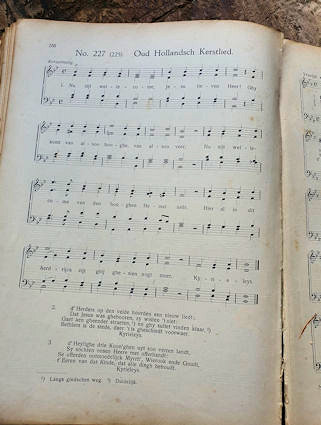 No. 227 (225) Oud Hollandsch Kerstlied.
1. Nu zijt wel - le - co - me, Je - su lie - ven Heer! Ghy
komt van al - soo ho - ghe, van al - soo veer. Nu zijt wel - le -
co - me van den hoo - ghen He - mel neêr. Hier al in dit
aerd - rijck zijt ghij ghe - sien nogt meer. Ky - ri - e - leys.
2.
d' Herders op den velde hoorden een nieuw liedt,
Dat Jesus was gheboren, zy wisten 't niet:
Gaet aen gheender straeten, ¹) en ghy sullet vinden klaar, ²)
Bethlem is de stede, daer 't is gheschiedt voorwaer.
Kyrieleys.
3
d' Heylighe drie Koon'ghen uyt soo verren landt,
Sy sochten onsen Heere met offerhandt;
Se offerden ootmoedelijck Myrrh', Wierook ende Goudt,
t' Eeren van dat Kinde, dat alle dingh behoudt.
Kyrieleys.
¹) Langs gindschen weg. ²) Duidelijk.